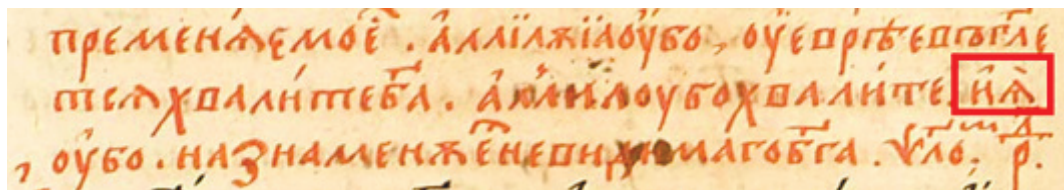 пременѧемое҆ . а҆ллїлѧїаоу҆бо , оу҆еврѣевъгл҃е
тсѧхвали́тебг҃а . а҆ллилоубохвали́те . и҆ꙗ҆
оу҆бо . назнаменѧе҆невидимагобг҃а . ѱл҃о . р҃ .